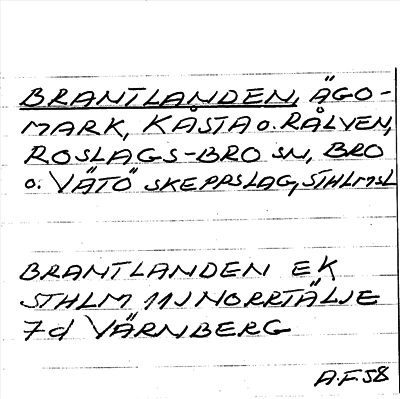 BRANTLANDEN, ÄGO-
MARK, KASTA o. RÅLVEN,
ROSLAGS-BRO SN, BRO
o. VÄTÖ SKEPPSLAG, STHLMSL
BRANTLANDEN EK
STHLM 11J NORRTÄLJE
7d VÄRNBERG
A.F.58